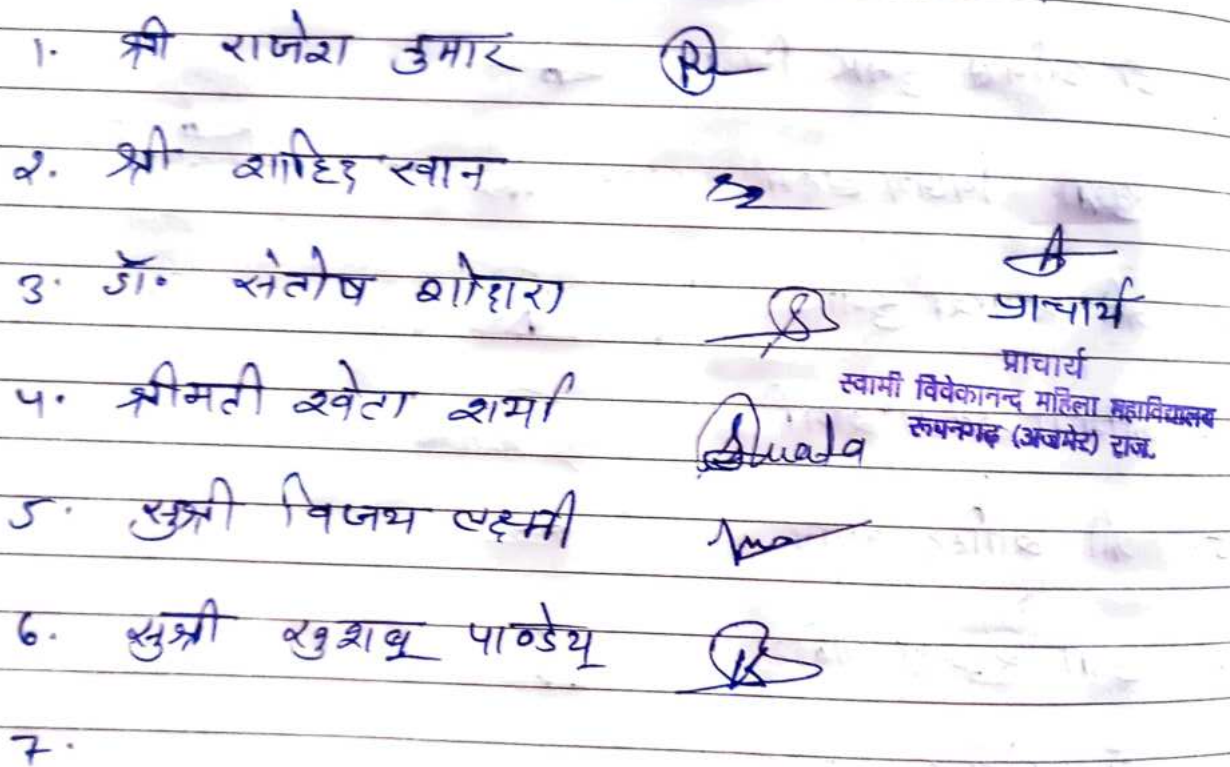 1. श्री राजेश कुमार
2. श्री शाहिद खान
3. डॉ. संतोष
प्राचार्य
प्राचार्य
स्वामी विवेकानन्द महिला महाविद्यालय
रूपनगढ़ (अजमेर) राज.
4. श्रीमती श्वेता शर्मा
Shwata
5. सुश्री विजय लक्ष्मी
6. सुश्री खुशबू पाण्डेय
7.